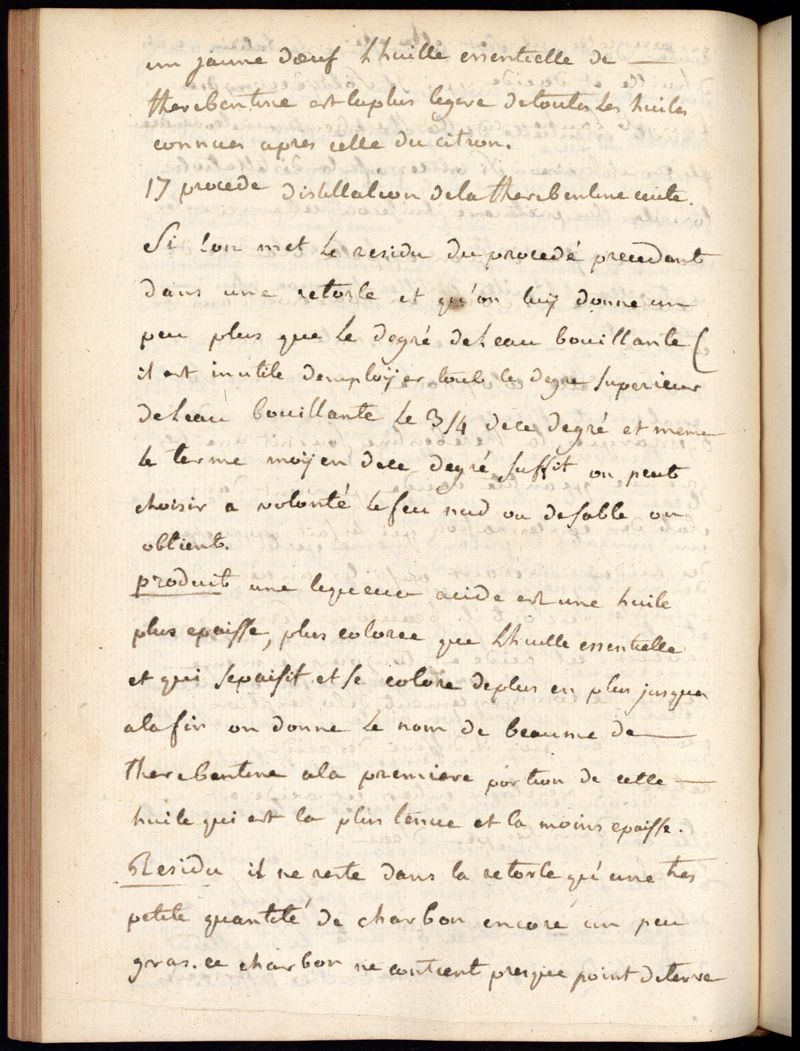 un jaune dœuf Lhuille essentielle de —
therebentine est la plus legere de toutes Les huiles
connues apres celle du citron.
17 procede distillation de la therebentine cuite.
Si Lon met Le residu du procedé precedent
dans une retorte et qu'on luÿ donne un
peu plus que Le degré de Leau bouillante (
il est inutile demploÿer tout le degre superieur
de Leau bouillante Le 3/4 de ce degré et meme
le terme moÿen de ce degré suffit on peut
choisir a volonté le feu nud ou de sable on
obtient.
produit une liqueur acide est une huile
plus epaisse, plus coloree que Lhuille essentielle
et qui sepaisit et se colore de plus en plus jusqua
a la fin on donne Le nom de beaume de —
therebentine a la premiere portion de cette —
huile qui est la plus tenue et la moins epaisse.
Residu il ne reste dans la retorte qu'une tres
petite quantité de charbon encore un peu
gras. ce charbon ne contient presque point de terre